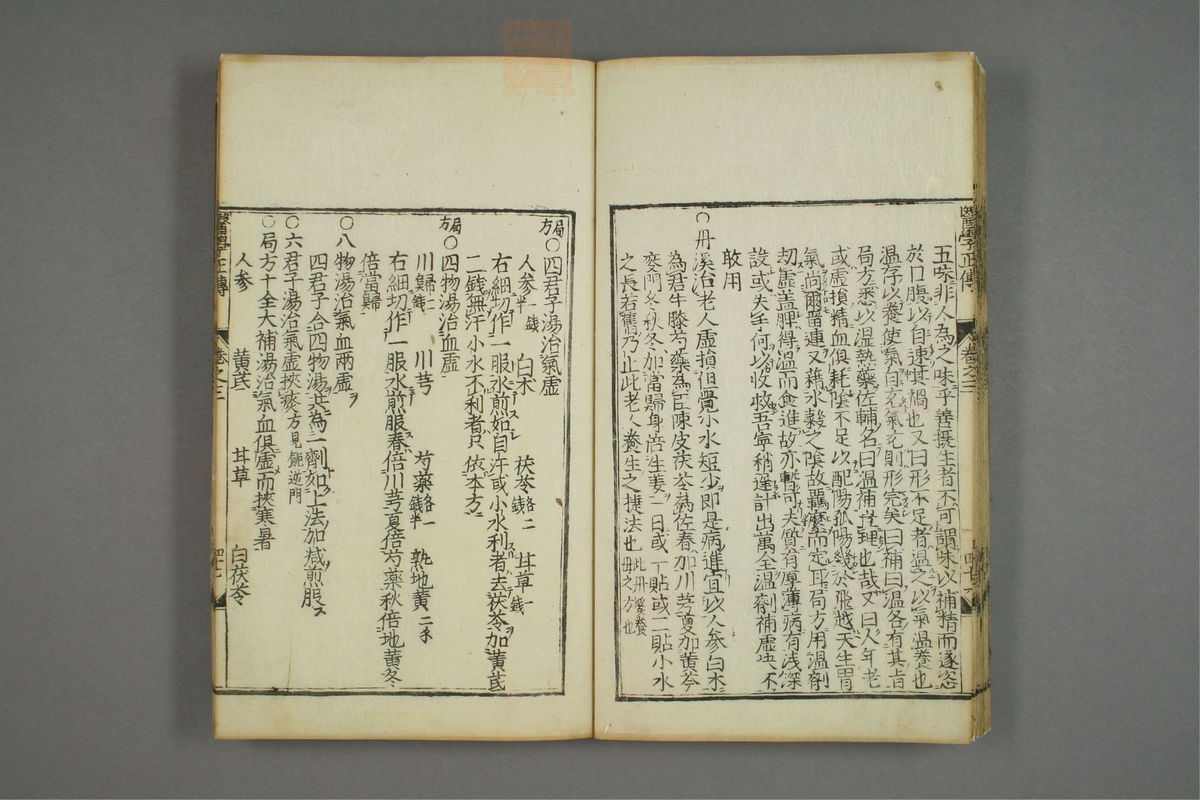 五味非人為之味乎善攝生者不可謂味以補精而遂恣
於口腹以自速其禍也又曰形不足者温之以氣温養也
温存以養使氣自充氣充則形完矣曰補曰温各有其旨
局方悉以温熱藥佐輔名曰温補豈理也哉又曰人年老
或虚損精血俱耗陰不足以配陽孤陽幾於飛越天生胃
氣尚爾留連又藉水穀之陰故羈縻而定耳局方用温劑
劫虚盖脾得温而食進故亦暫可夫質有厚薄病有浅深
設或失手何以收救吾寧稍遲計出萬全温劑補虚决不
敢用
○丹溪治老人虚損但覺小水短少即是病進宜以人参白朮
為君牛膝芍藥為臣陳皮茯苓為佐春加川芎夏加黄芩
麥門冬秋冬加當歸身倍生姜一日或一貼或二貼小水
之長若舊乃止此老人養生之捷法也此丹溪養母之方也
醫學正傳
卷之三
局方
○四君子湯治氣虚
人参一錢半 白朮 茯苓各二錢 甘草一錢
右細切作一服水煎如自汗或小水利者去茯苓加黄芪
二錢無汗小水不利者只依本方
局方
○四物湯治血虚
川歸二錢 川芎 芍藥各一錢半 熟地黄二錢
右細切作一服水煎服春倍川芎夏倍芍藥秋倍地黄冬
倍當歸
○八物湯治氣血兩虚
四君子合四物湯共為一劑如上法加減煎服
○六君子湯治氣虚挾痰方見 門
○局方十全大補湯治氣血俱虚而挾寒暑
人参 黄芪 甘草 白茯苓
醫學正傳
卷之三